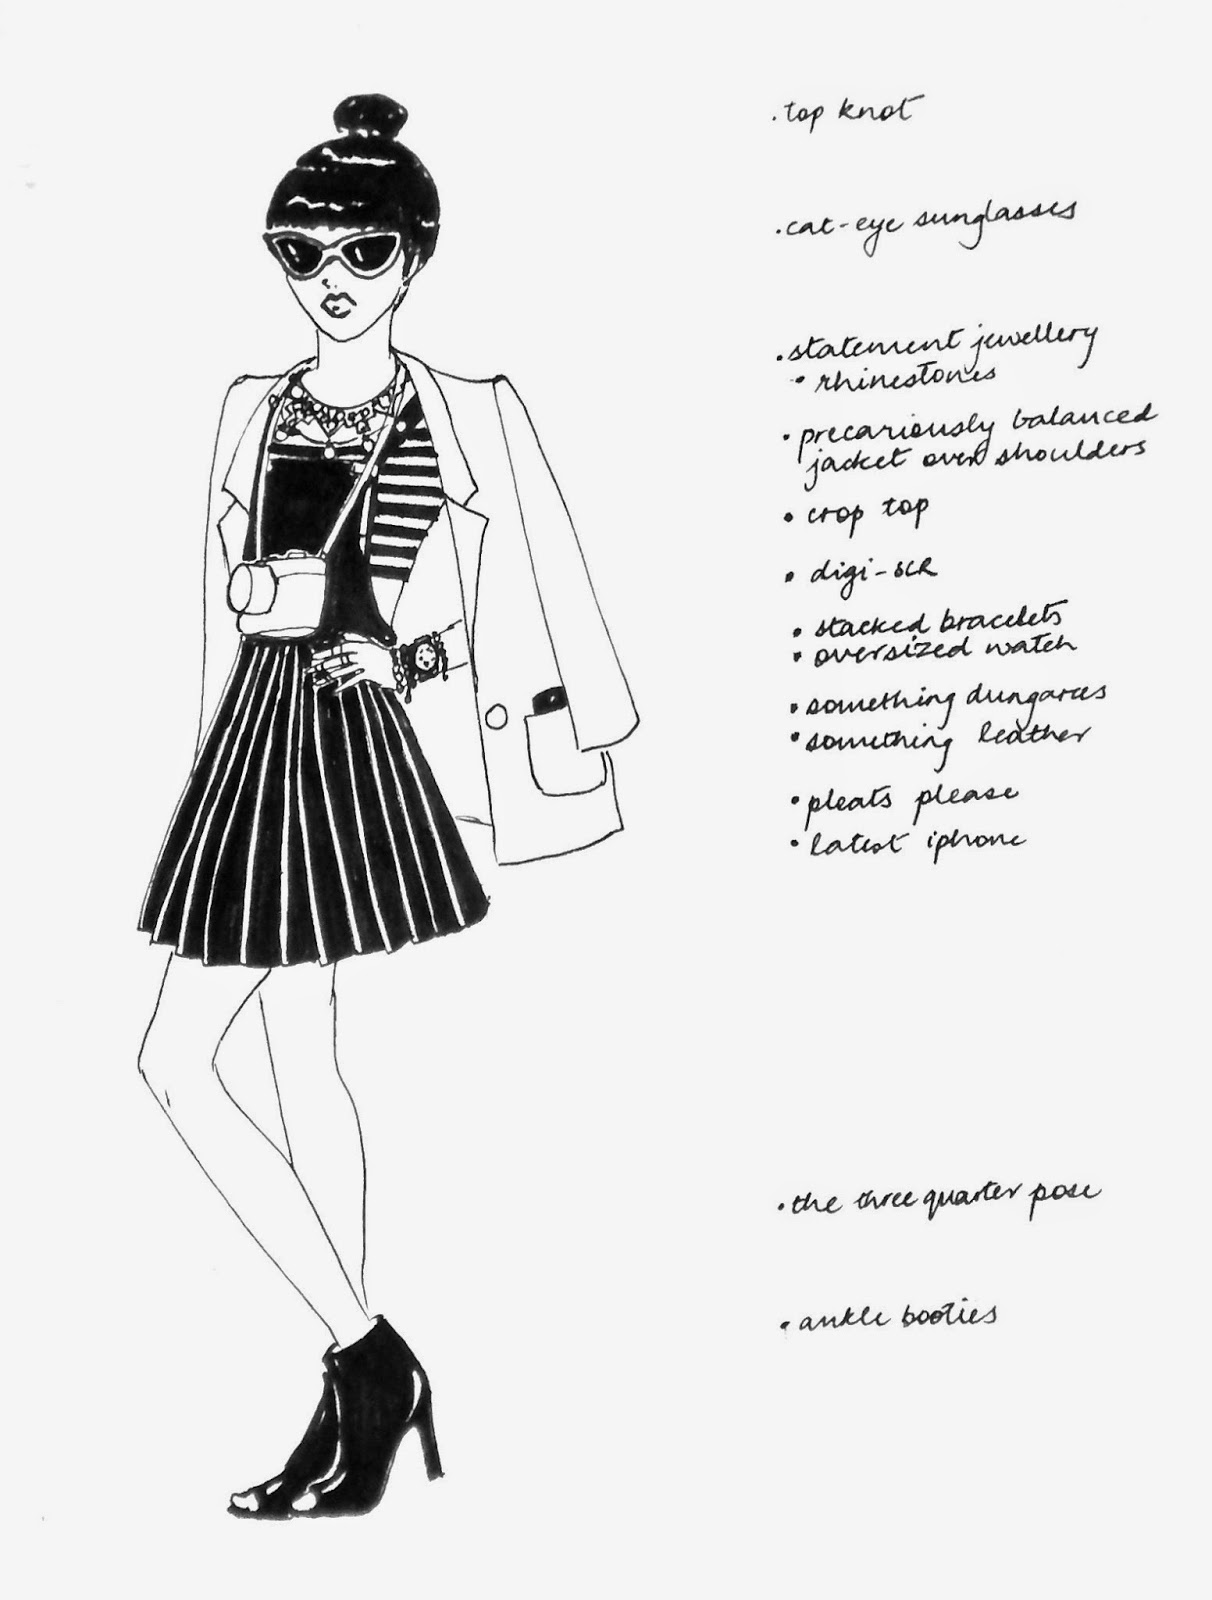 . top knot
. cat-eye sunglasses
. statement jewellery
• rhinestones
• precariously balanced
jacket over shoulders
• crop top
• digi-SLR
• stacked bracelets
• oversized watch
• something dungarees
• something leather
• pleats please
• latest iphone
. the three quarter pose
• ankle booties